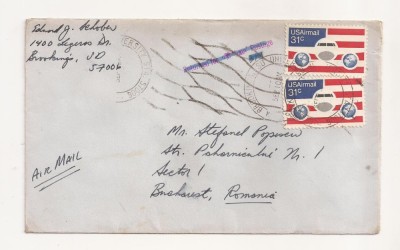 Edward J. Schober
1400 Segeros Dr.
Brookings, SD
57006
USAirmail
31c
USAirmail
31c
Mr. Stefanel Popescu
Str. Paharnicului Nr. 1
Sector 1
Bucharest, Romania
AIR MAIL